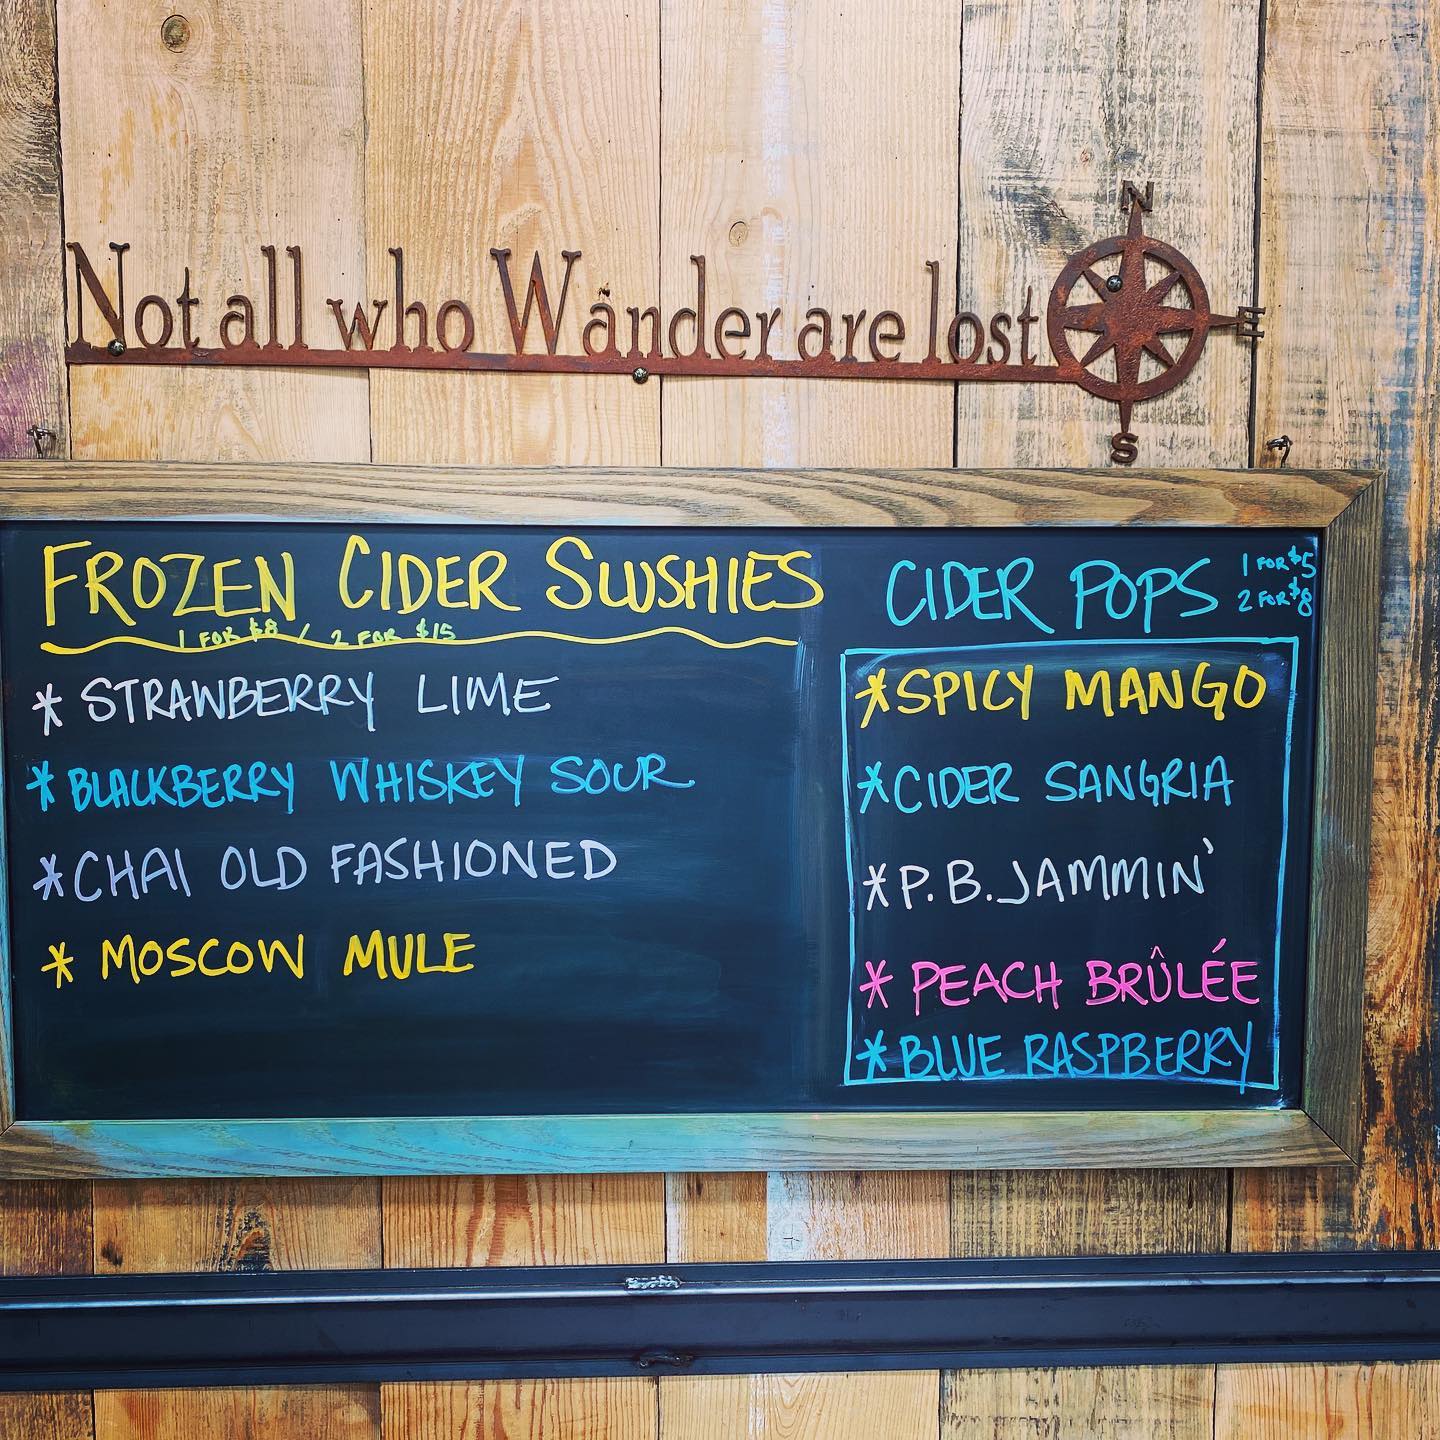 N
Not all who Wander are lost
E
S
FROZEN CIDER SLUSHIES
1 FOR $8 / 2 FOR $15
* STRAWBERRY LIME
* BLACKBERRY WHISKEY SOUR
* CHAI OLD FASHIONED
* MOSCOW MULE
CIDER POPS
1 FOR $5
2 FOR $8
* SPICY MANGO
* CIDER SANGRIA
* P.B. JAMMIN'
* PEACH BRÛLÉE
* BLUE RASPBERRY